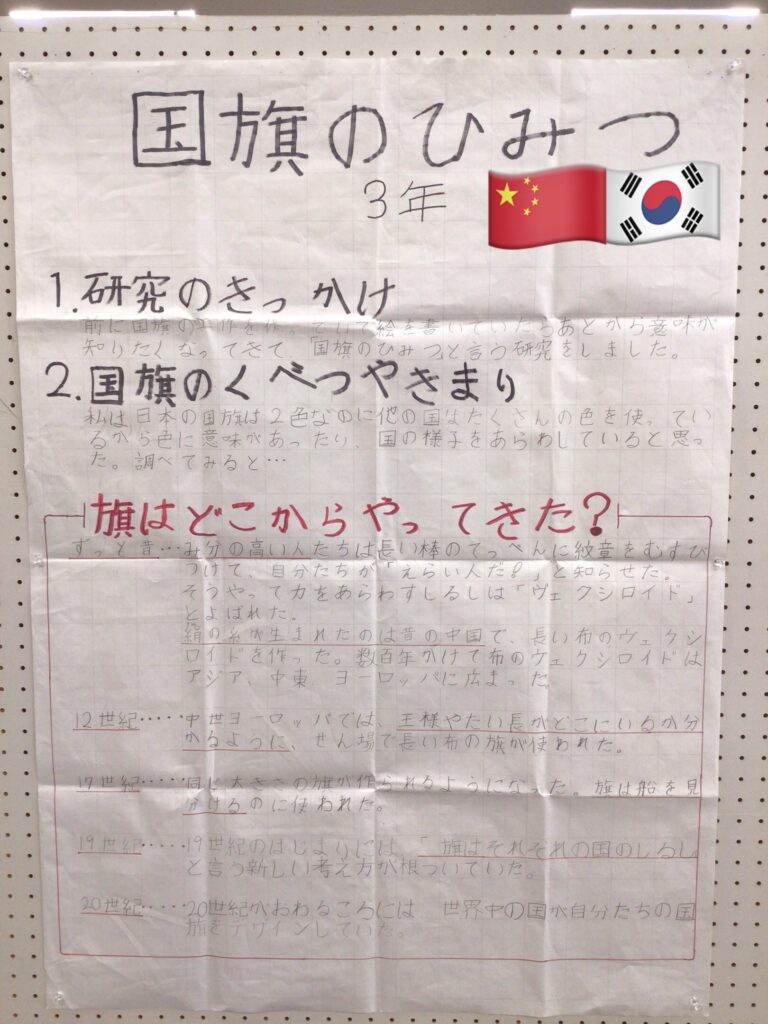 国旗のひみつ
3年
1.研究のきっかけ
前に国旗の工作を作っていて絵を書いていたらあとから意味が
知りたくなってきて、「国旗のひみつ」と言う研究をしました。
2.国旗のくべつやきまり
私は日本の国旗は2色なのに他の国はたくさんの色を使ってい
るから色に意味があったり、国の様子をあらわしていると思っ
た。調べてみると…
旗はどこからやってきた?
ずっと昔…み分の高い人たちは長い棒のてっぺんに紋章をむすび
つけて、自分たちが「えらい人だ!」と知らせた。
そうやって力をあらわすしるしは「ヴェクシロイド」
とよばれた.
絹の糸が生まれたのは昔の中国で、長い布のヴェクシ
ロイドを作った。数百年かけて布のヴェクシロイドは
アジア、中東 ヨーロッパに広まった
12世紀‥‥‥中世ヨーロッパでは、王様やたい長がどこにいるか分
かるように、せん場で長い布の旗が使われた。
17世紀‥‥‥同じ大きさの旗が作られるようになった。旗は船を見
分けるのに使われた。
19世紀‥‥‥19世紀のはじまりには、「旗はそれぞれの国のしるし
と言う新しい考え方が根づいていた。
20世紀‥‥‥20世紀がおわるころには 世界中の国が自分たちの国
旗をデザインしていた。